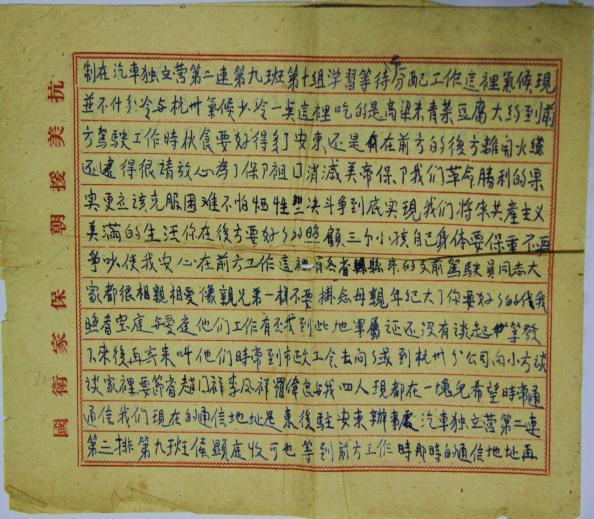 抗美援朝 保家衛國
制在汽車独立营第二連第九班第十组学習等待分配工作這裡氣候現
並不什么冷与杭州氣候少冷一点這裡吃的是高梁米青菜豆腐大约到前
方駕駛工作時伙食要好得多了安東还是在前方的後方離開火線
还遠得很請放心為了保卫祖国消滅美帝保卫了我們革命勝利的果
实更应该克服困难不怕牺牲坚决斗争到底实現我們將來共產主义
美滿的生活你在後方要好好的照顧三个小孩自己身体要保重不要
争吵使我安心在前方工作這裡有各省縣來的支前駕駛員同志大
家都很相親相爱像親兄弟一样不要掛念母親年纪大了你要好好的代我
照看空庭与愛庭他们工作有否找到此地軍属证还没有談起等發
下來後再寄來叫他们時常到市政工会去问或到杭州分公司向小方谈
谈家裡要節省趙门祥李凤祥羅偉良与我四人現都在一塊兒希望時常通
通信我们現在的通信地址是東後駐安東辦事處汽車独立营第二連
第三排第九班侯顕庭收可也等到前方工作時那時的通信地址再